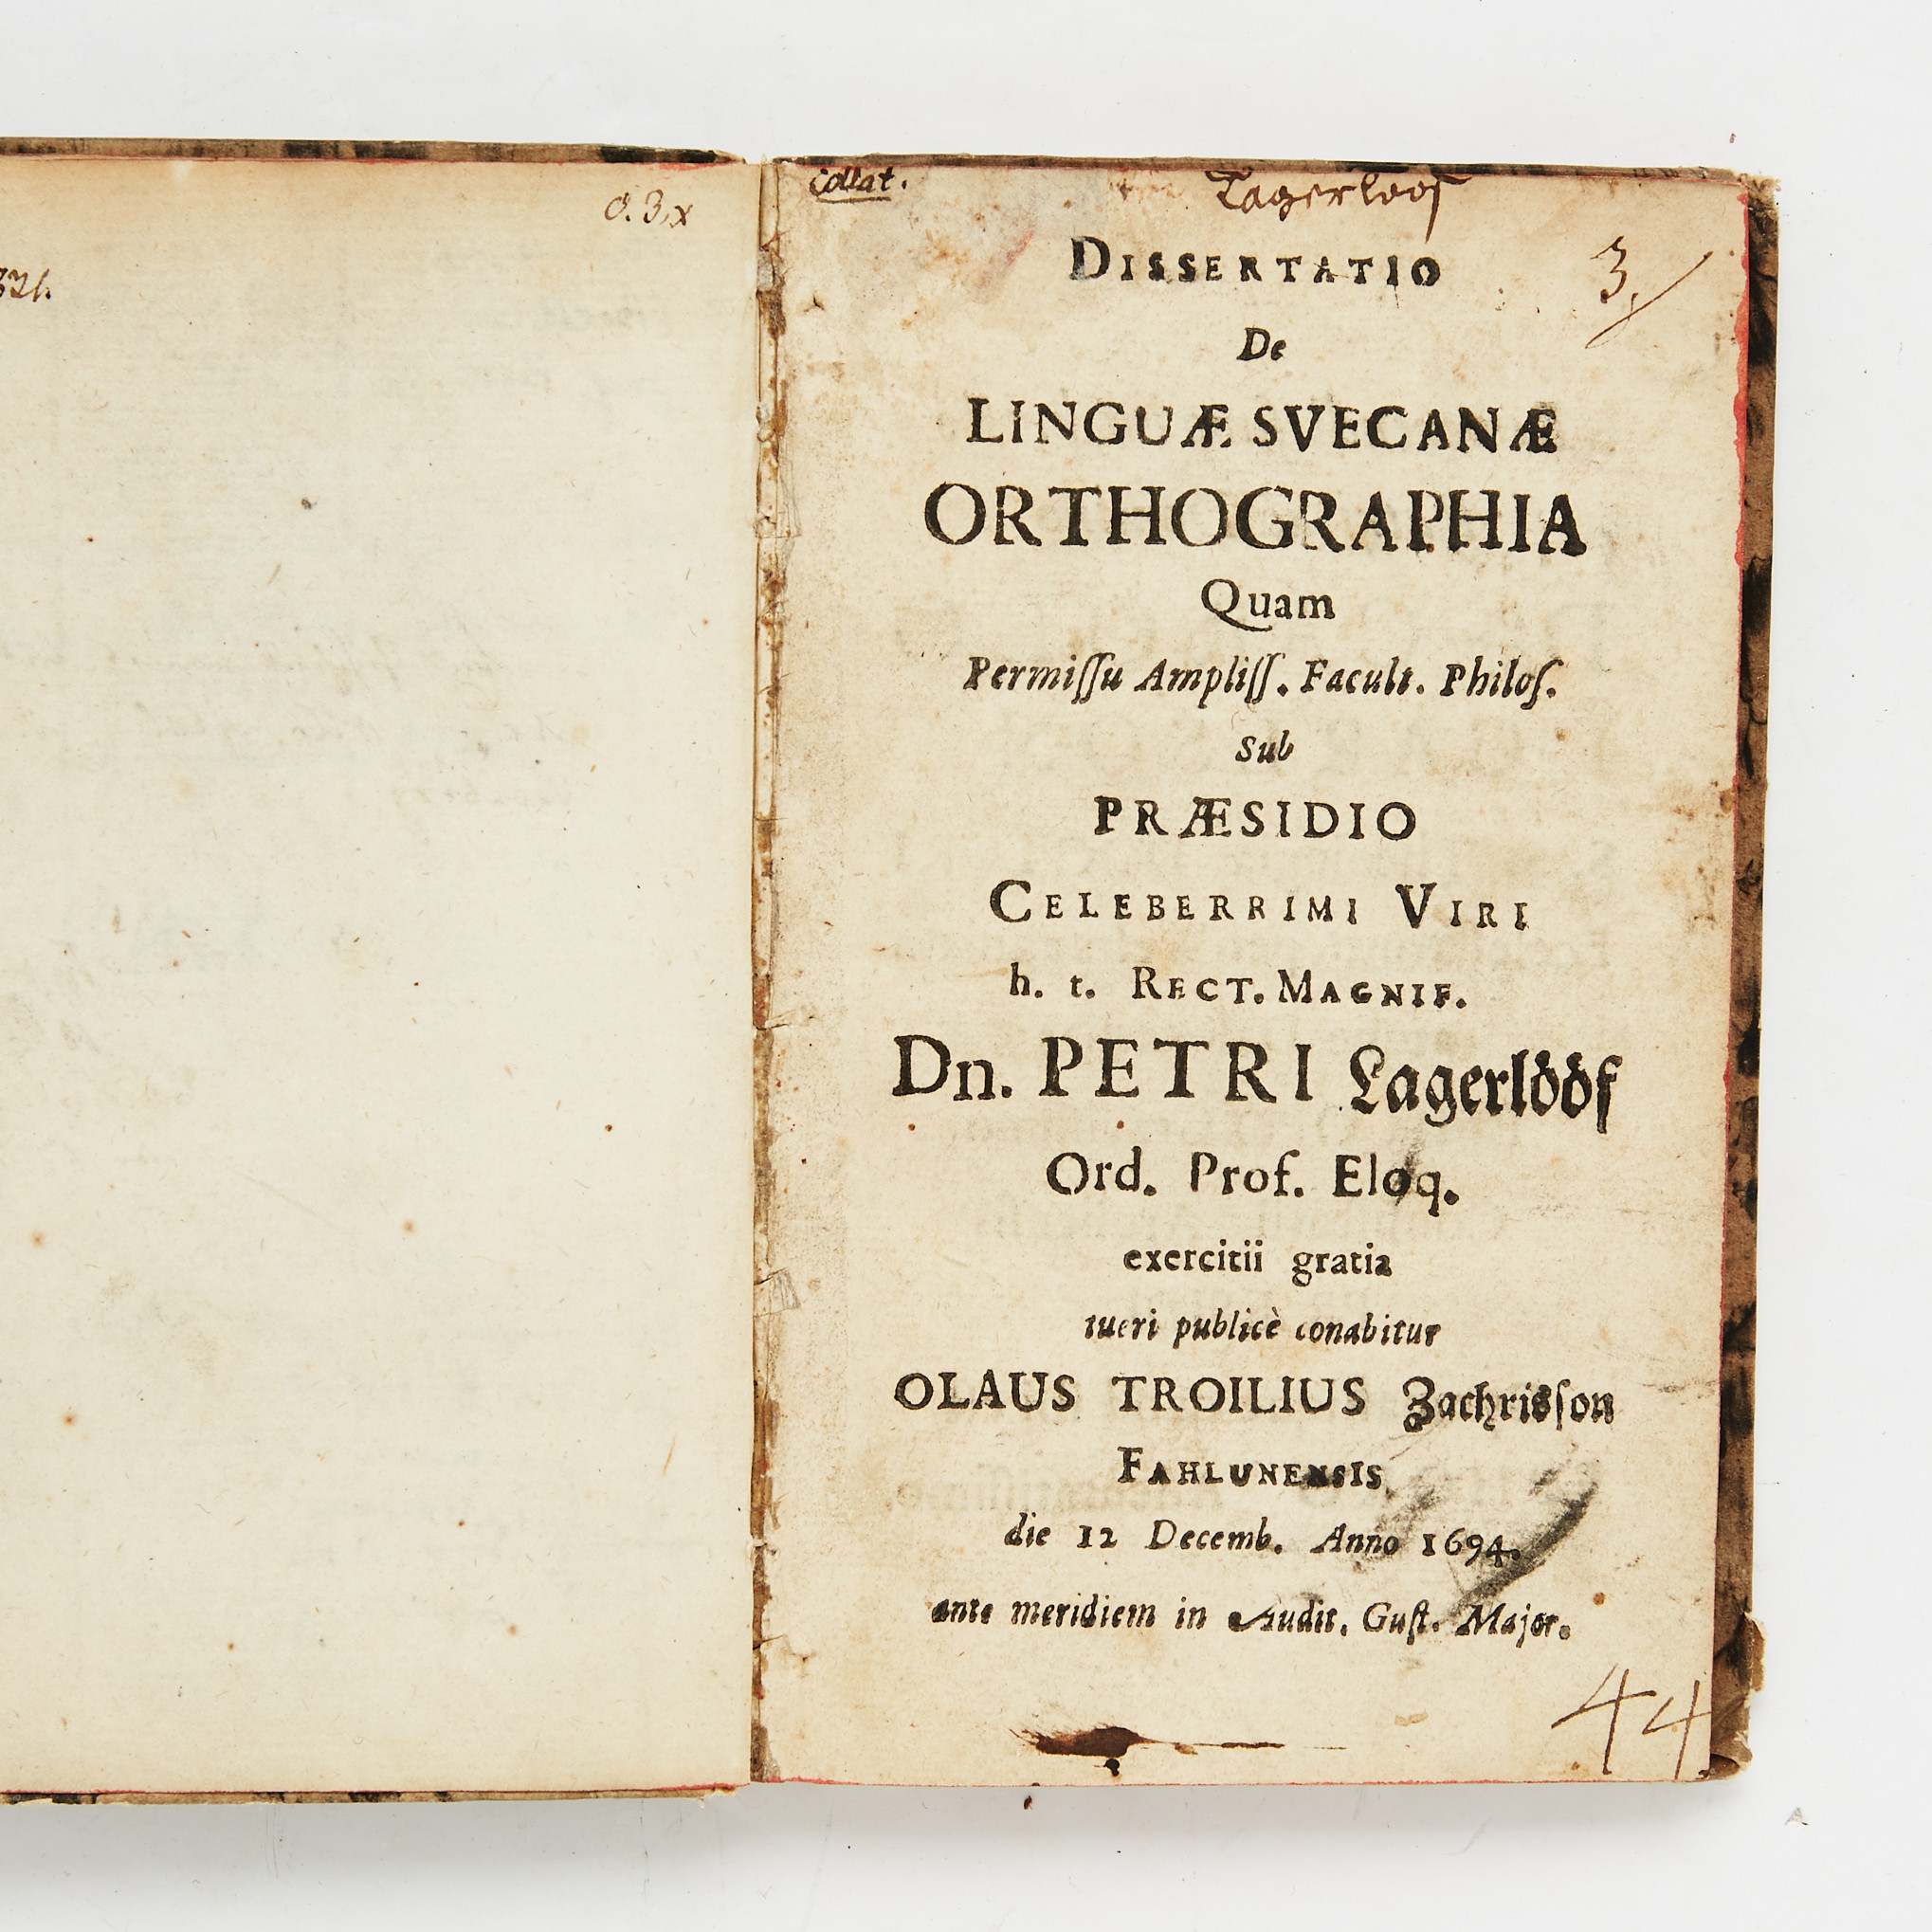 321.
0. 3.x
Collat.
Lagerloof
3.
DISSERTATIO
De
LINGUÆ SVECANÆ
ORTHOGRAPHIA
Quam
Permiſſu Ampliſſ. Facult. Philoſ.
Sub
PRÆSIDIO
CELEBERRIMI VIRI
h. t. RECT. MAGNIF.
Dn. PETRI Lagerlööf
Ord. Prof. Eloq.
exercitii gratia
tueri publicè conabitur
OLAUS TROILIUS Zachrisſon
FAHLUNENSIS
die 12 Decemb. Anno 1694.
ante meridiem in Audit. Guſt. Major.
44